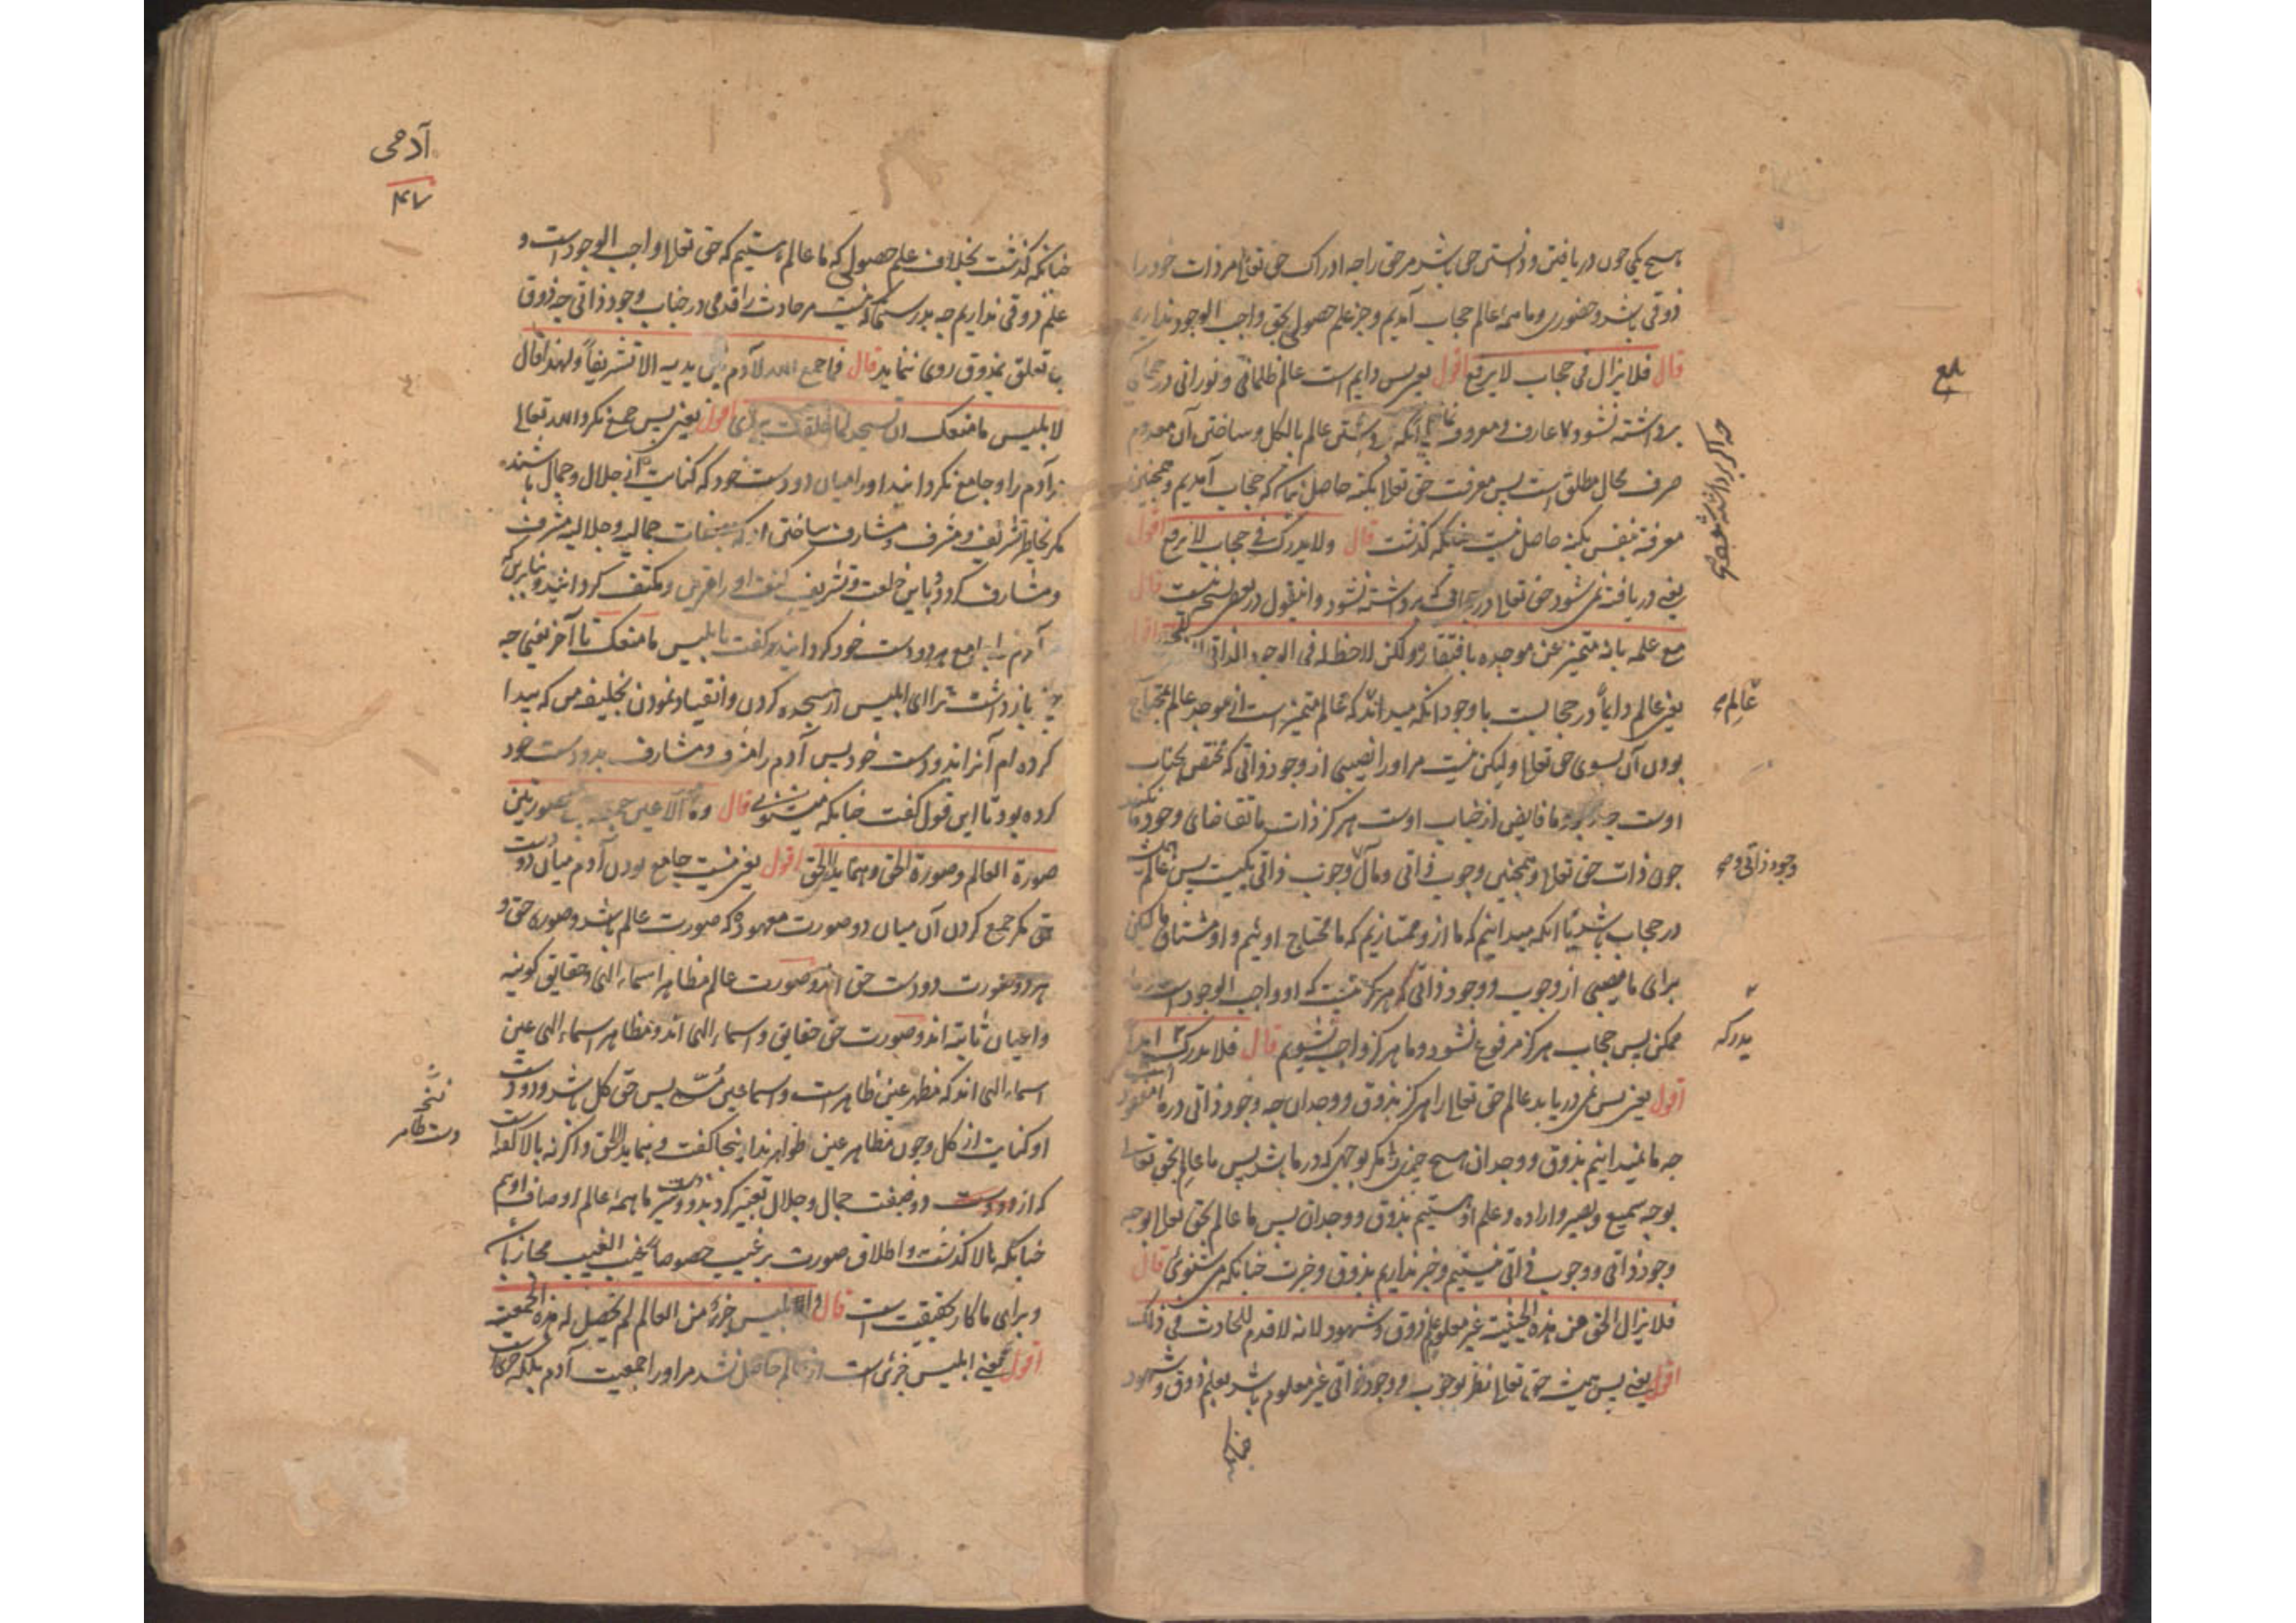 هیچ یکی چون دریافتن و دانستن حق باشد مر حق را چه ادراک حق تعالی مر ذات خود را
ذوقی باشد و حضوری و ما همه عالم حجاب آمدیم و جز علم حصولی بحق واجب الوجود نداریم
قال فلا یزال فی حجاب لا یرفع اقول یعنی پس دایم است عالم ظلمانی و نورانی در حجابی
برداشته نشود عارف و معروف برداشتن عالم بالکل و ساختن آن معدوم
صرف محال مطلق است پس معرفت حق تعالی بکنه حاصل که حجاب آمدیم و همچنین
معرفة نفس بکنه حاصل نیست چنانکه گذشت قال ولا یدرک فی حجاب لا یرفع اقول
یعنی دریافته نمی شود حق تعالی در حجابی که برداشته نشود و این قول در بعض نسخ نیست قال
مع علمه بانه متمیز عن موجده بافتقاره ولکن لا حظ له فی الوجود الذاتی
یعنی عالم دایما در حجابیست با وجود آنکه میداند که عالم متمیز است از موجد عالم بمحتاج
بودن آن بسوی حق تعالی ولیکن نیست مر او را نصیبی از وجود ذاتی که مختص بجناب
اوست چه وجود ما فایض از جناب اوست هرگز ذات ما تقاضای وجود ما نکند
چون ذات حق تعالی و همچنین وجوب ذاتی و مآل وجوب ذاتی یکیست پس عالم
در حجاب باشد با آنکه میدانیم که ما از و ممتازیم که ما محتاج اوئیم و او مشتاق ما لیکن
برای ما نصیبی از وجوب و وجود ذاتی هرگز نیست که او واجب الوجود است
ممکن پس حجاب هرگز مرفوع نشود و ما هرگز واجب نشویم قال فلا یدرکه ابدا
اقول یعنی پس نمی دریابد عالم حق تعالی را هرگز بذوق و وجدان چه وجود ذاتی در مفقود
چه ما نمیدانیم بذوق و وجدان هیچ چیزی را مگر بوجهی که در ما باشد پس ما عالم بحق تعالی
بوجه سمیع و بصیر و اراده و علم او هستیم بذوق و وجدان پس ما عالم بحق تعالی بوجه
وجود ذاتی و وجوب ذاتی نیستیم و خبر نداریم بذوق و خبرت چنانکه می شنوی قال
فلا یزال الحق من هذه الحیثیة غیر معلوم علم ذوق و شهود لانه لا قدم للحادث فی ذلک
اقول یعنی پس همیشه حق تعالی نظر بوجوب و وجود ذاتی غیر معلوم باشد بعلم ذوق و شهود
چنانکه
عالم
وجود ذاتی
یدرکه
آدمی
۴۷
چنانکه گذشت بخلاف علم حصولی که ما عالم هستیم که حق تعالی واجب الوجود است و
علم ذوقی نداریم چه بدرستیکه نیست مر حادث را قدمی در جناب وجود ذاتی چه ذوق
بی تعلق بذوق روی ننماید قال فما جمع الله لآدم بین یدیه الا تشریفا ولهذا قال
لابلیس ما منعک ان تسجد لما خلقت بیدی اقول یعنی پس جمع نکرد الله تعالی
برای آدم را و جامع نگردانید او را میان دو دست خود که کنایت از جلال و جمال باشند
مگر بخاطر تشریف و مشرف و مشارف ساختن او که بصفات جمالیه و جلالیه مشرف
و مشارف کرد و باین خلعت و تشریف را و مکتنف گردانید و بنابرین
آدم را جامع هر دو دست خود گردانید گفت بابلیس ما منعک تا آخر یعنی چه
چیز بازداشت ترا ای ابلیس از سجده کردن و انقیاد نمودن بخلیفه من که پیدا
کرده ام آنرا بدو دست خود پس آدم را مشرف و مشارف بدو دست خود
کرده بود تا این قول گفت چنانکه میشنوی قال وما هو الا عین جمعه بین الصورتین
صورة العالم وصورة الحق وهما یدا الحق اقول یعنی نیست جامع بودن آدم میان دو دست
حق مگر جمع کردن آن میان دو صورت معهود که صورت عالم باشد و صورت حق و
هر دو صورت دو دست حق اند و صورت عالم مظاهر اسماء الهی و حقایق کونیه
و اعیان ثابته اند و صورت حق حقایق و اسماء الهی اند و مظاهر اسماء الهی عین
اسماء الهی اند که مظهر عین ظاهر است و اسما عین مسمی پس حق کل باشد و دو دست
او کنایت از کل و چون مظاهر عین ظواهر اند اینجا گفت وهما یدا الحق و اگرنه بالا گفته است
که از دو دست دو صفت جمال و جلال تعبیر کرد ما همه عالم اوصاف اوئیم
چنانکه بالا گذشت و اطلاق صورت بر غیب خصوصا غیب الغیب مجاز باشد
و برای ما کار بحقیقت است قال و ابلیس جزء من العالم لم تحصل له هذه الجمعیة
اقول یعنی ابلیس جزئی است از عالم حاصل نشد مر او را جمعیت آدم بلکه جزئی است
نسخه